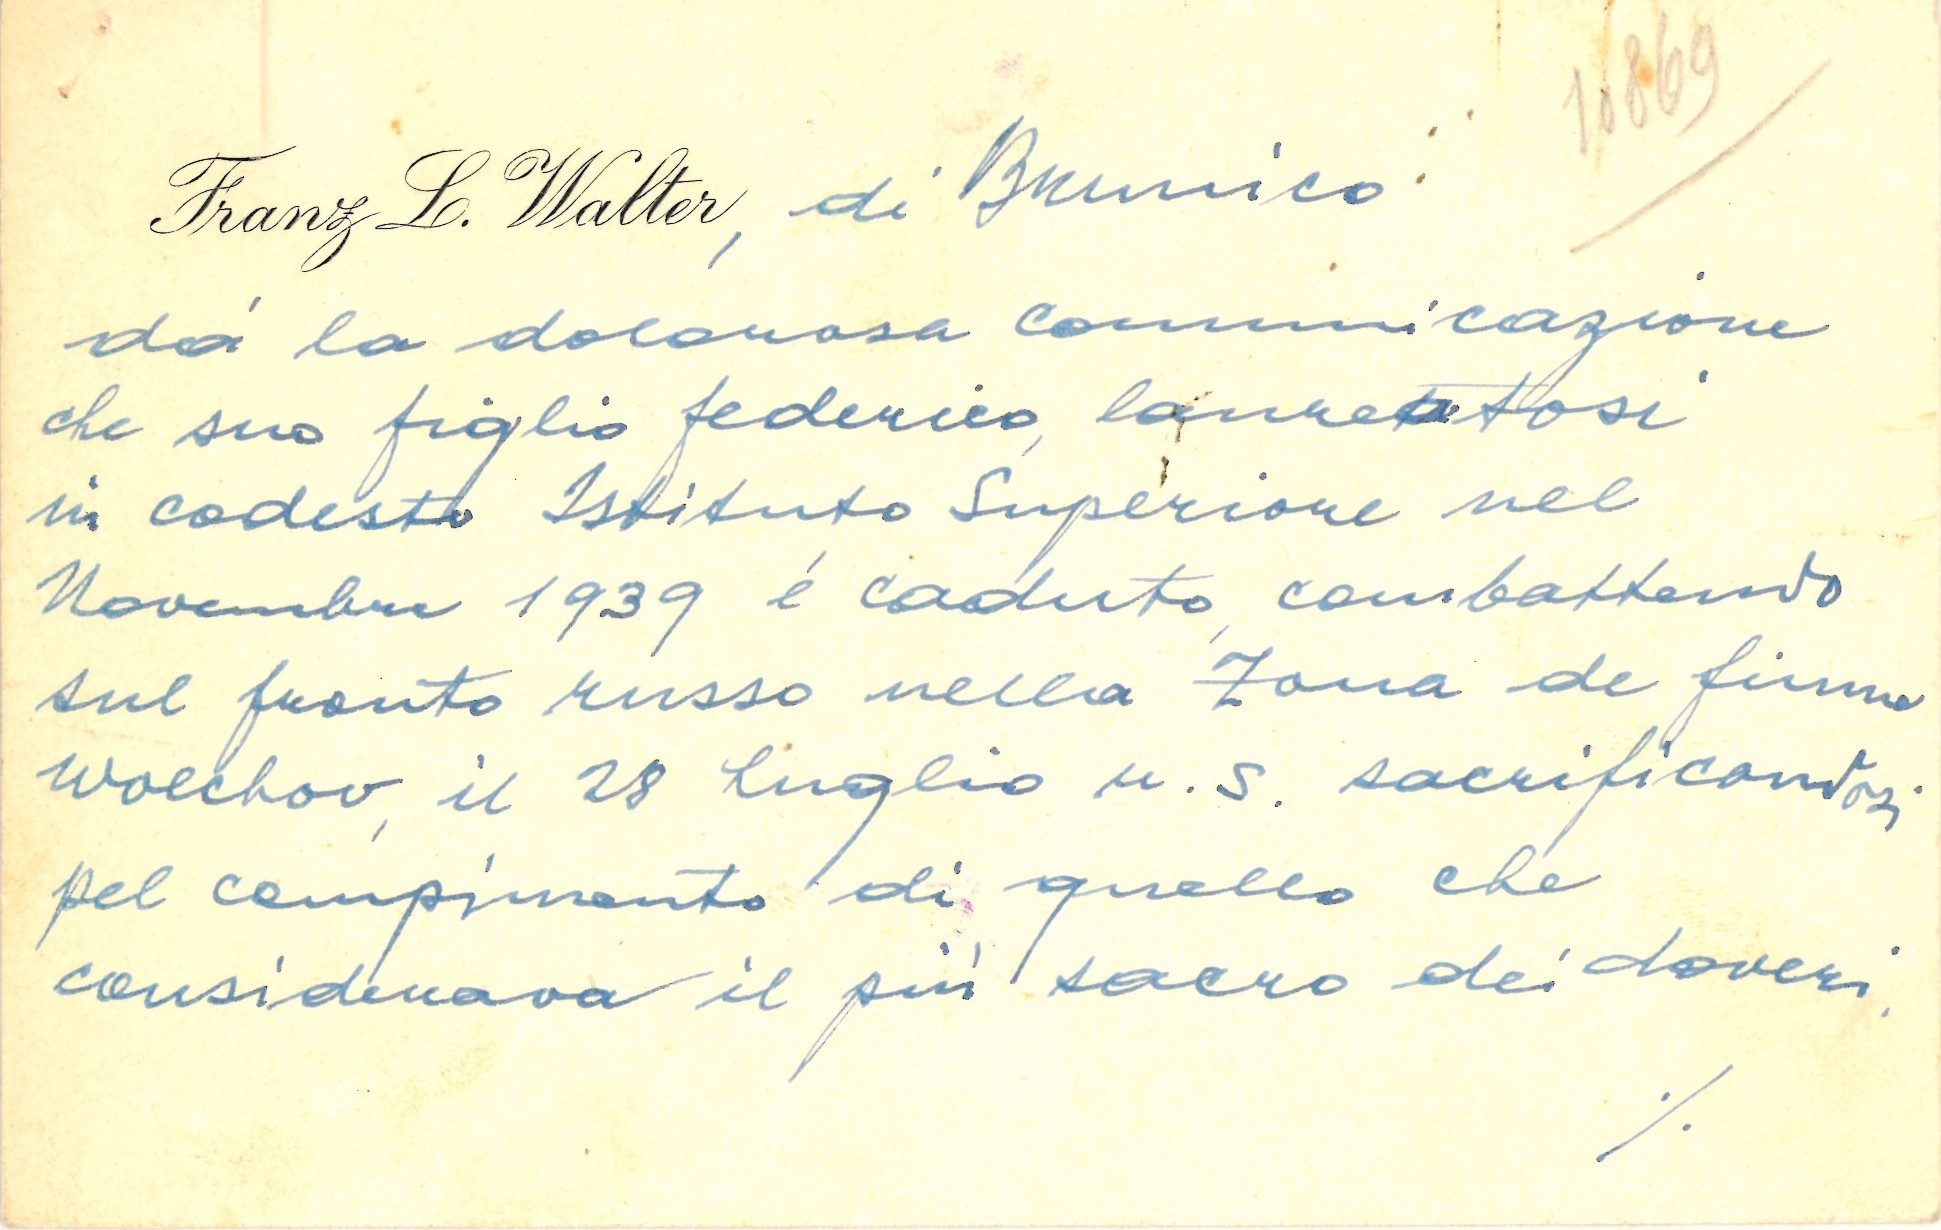 10869
Franz L. Walter, di Brunico
dá la dolorosa comunicazione
che suo figlio federico, laureatosi
in codesto Istituto Superiore nel
Novembre 1939 é caduto, combattendo
sul fronto russo nella Zona de fiume
Wolchov, il 28 Luglio u.s. sacrificandosi
pel compimento di quello che
considerava il piú sacro dei doveri.
./.